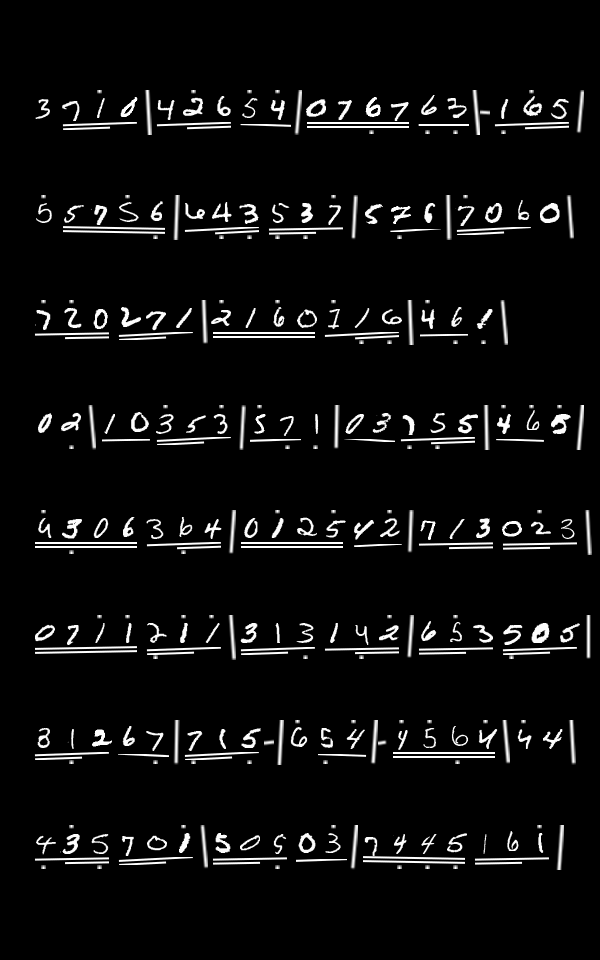 3 7 1 0 | 4 2 6 5 4 | 0 7 6 7 6 3 | - 1 6 5 |
5 5 7 5 6 | 6 4 3 5 3 7 | 5 7 6 | 7 0 6 0 |
7 2 0 2 7 1 | 2 1 6 0 1 1 6 | 4 6 1 |
0 2 | 1 0 3 5 3 | 5 7 1 | 0 3 7 5 5 | 4 6 5 |
4 3 0 6 3 6 4 | 0 1 2 5 4 2 | 7 1 3 0 2 3 |
0 7 1 1 2 1 1 | 3 1 3 1 4 2 | 6 5 3 5 0 5 |
3 1 2 6 7 | 7 1 5 - | 6 5 4 | - 4 5 6 4 | 4 4 |
4 3 5 7 0 1 | 5 0 5 0 3 | 7 4 4 5 1 6 1 |